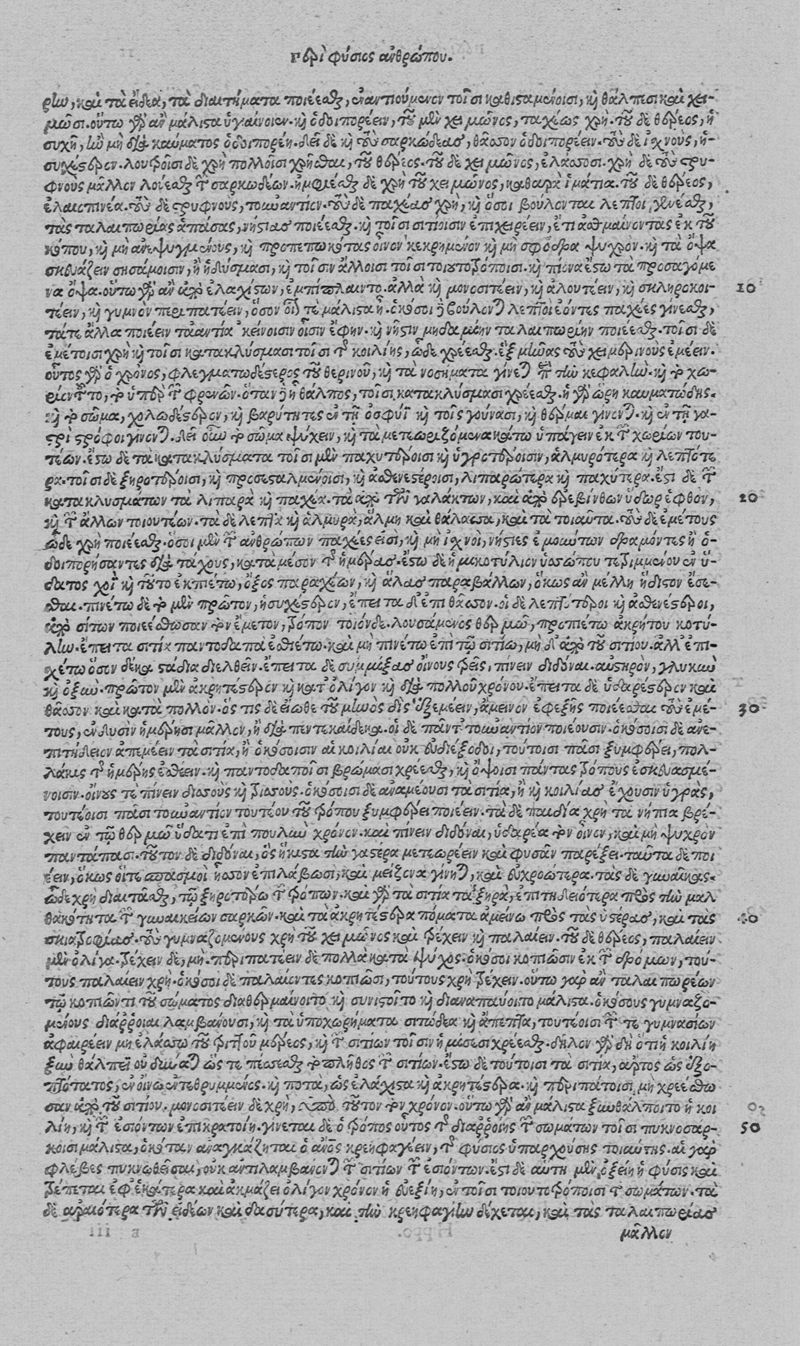 Περὶ φύσιος ἀνθρώπου.
ρίω, καὶ τὰ εἴδεα, τὰ διαιτήματα ποιέεσθαι, ἐναντιούμενον τοῖσι καθισταμένοισι, καὶ θάλπεσι καὶ χει-
μῶσι. οὕτω γὰρ ἂν μάλιστα ὑγιαίνοιεν. καὶ ὁδοιπορέειν, τοῦ μὲν χειμῶνος, ταχέως χρή. τοῦ δὲ θέρεος, ἡ-
συχῆ, ἢν μὴ διὰ καύματος ὁδοιπορέῃ. δεῖ δὲ καὶ τοὺς σαρκώδεας, θᾶσσον ὁδοιπορέειν. τοὺς δὲ ἰσχνοὺς, ἡ-
συχέστερον. λουτροῖσι δὲ χρὴ πολλοῖσι χρῆσθαι, τοῦ θέρεος. τοῦ δὲ χειμῶνος, ἐλάσσοσι. χρὴ δὲ τοὺς στρυ-
φνοὺς μᾶλλον λούεσθαι τῶν σαρκωδέων. ἠμφιέσθαι δὲ χρὴ τοῦ χειμῶνος, καθαρὰ ἱμάτια. τοῦ δὲ θέρεος,
ἐλαιοπινέα. τοὺς δὲ στρυφνοὺς, τοὐναντίον. τοὺς δὲ παχέας χρὴ, καὶ ὅσοι βούλονται λεπτοὶ γενέσθαι,
τὰς ταλαιπωρίας ἁπάσας, νήστιας ποιέεσθαι. καὶ τοῖσι σιτίοισιν ἐπιχειρέειν, ἔτι ἀσθμαίνοντας ἐκ τοῦ
κόπου, καὶ μὴ ἀνεψυγμένους, καὶ προπεπωκότας οἶνον κεκρημένον καὶ μὴ σφόδρα ψυχρόν. καὶ τὰ ὄψα
σκευάζειν σησάμοισιν, ἢ ἡδύσμασι, καὶ τοῖσιν ἄλλοισι τοῖσι τοιουτοτρόποισι. καὶ πίονα ἔστω τὰ προσαγόμε
να ὄψα. οὕτω γὰρ ἂν ἀπὸ ἐλαχίστων, ἐμπίπλαιντο. ἀλλὰ καὶ μονοσιτέειν, καὶ ἀλουτέειν, καὶ σκληροκοι-
τέειν, καὶ γυμνὸν περιπατέειν, ὅσον οἷόν τε μάλιστα ᾖ. ὁκόσοι δὲ βούλονται λεπτοὶ ἐόντες παχέες γίνεσθαι,
τά τε ἄλλα ποιέειν τἀναντία κείνοισιν οἷσιν ἔφην. καὶ νῆστιν μηδαμὴν ταλαιπωρίην ποιέεσθαι. τοῖσι δὲ
ἐμέτοισι χρὴ καὶ τοῖσι κατακλύσμασι τοῖσι τῆς κοιλίης, ὧδε χρέεσθαι. ἓξ μῆνας τοὺς χειμερινοὺς ἐμέειν.
οὗτος γὰρ ὁ χρόνος, φλεγματωδέστερος τοῦ θερινοῦ, καὶ τὰ νοσήματα γίνεται περὶ τὴν κεφαλὴν. καὶ τὸ χω-
ρίον τοῦτο, τὸ ὑπὲρ τῶν φρενῶν. ὅταν δὲ ᾖ θάλπος, τοῖσι κατακλύσμασι χρέεσθαι. ἡ γὰρ ὥρη καυματώδης.
καὶ τὸ σῶμα, χολωδέστερον, καὶ βαρύτητες ἐν τῇ ὀσφύϊ καὶ τοῖς γούνασι, καὶ θέρμαι γίνονται. καὶ ἐν τῇ γα-
στρὶ στρόφοι γίνονται. δεῖ οὖν τὸ σῶμα ψύχειν, καὶ τὰ μετεωριζόμενα κάτω ὑπάγειν ἐκ τῶν χωρίων του-
τέων. ἔστω δὲ τὰ κατακλύσματα τοῖσι μὲν παχυτέροισι καὶ ὑγροτέροισιν, ἁλμυρότερα καὶ λεπτότε
ρα. τοῖσι δὲ ξηροτέροισι, καὶ προσεσταλμένοισι, καὶ ἀσθενεστέροισι, λιπαρώτερα καὶ παχύτερα. ἔστι δὲ τῶν
κατακλυσμάτων τὰ λιπαρὰ καὶ παχέα. τὰ ἀπὸ τῶν γαλάκτων, καὶ ἀπὸ ἐρεβίνθων ὕδωρ ἑφθὸν,
καὶ τῶν ἄλλων τοιουτέων. τὰ δὲ λεπτὰ καὶ ἁλμυρὰ, ἅλμη καὶ θάλασσα, καὶ τὰ τοιαῦτα. τοὺς δὲ ἐμέτους
ὧδε χρὴ ποιέεσθαι. ὅσοι μὲν τῶν ἀνθρώπων παχέες εἰσὶ, καὶ μὴ ἰσχνοὶ, νήστιες ἐμούντων δραμόντες ἢ ὁ-
δοιπορήσαντες διὰ τάχους, κατὰ μέσον τῆς ἡμέρας. ἔστω δὲ ἡμικοτύλιον ὑσσώπου τετριμμένου ἐν ὕ-
δατος χοῒ. καὶ τοῦτο ἐκπιέτω, ὄξος παραχέων, καὶ ἅλας παραβάλλων, ὅκως ἂν μέλλῃ ἥδιστον ἔσε-
σθαι. πινέτω δὲ τὸ μὲν πρῶτον, ἡσυχέστερον, ἔπειτα δ' ἐπὶ θᾶσσον. οἱ δὲ λεπτότεροι καὶ ἀσθενέστεροι,
ἀπὸ σίτων ποιεέσθωσαν τὸν ἔμετον, τρόπον τοιόνδε. λουσάμενος θερμῷ, προπιέτω ἀκρήτου κοτύ-
λην. ἔπειτα σιτία παντοδαπὰ ἐσθιέτω. καὶ μὴ πινέτω ἐπὶ τῷ σιτίῳ, μηδ' ἀπὸ τοῦ σιτίου. ἀλλ' ἐπι-
σχέτω ὅσον δέκα στάδια διελθεῖν. ἔπειτα δὲ συμμίξας οἴνους τρεῖς, πίνειν διδόναι. αὐστηρὸν, γλυκὺν
καὶ ὀξύν. πρῶτον μὲν ἀκρητέστερον καὶ κατ' ὀλίγον καὶ διὰ πολλοῦ χρόνου. ἔπειτα δὲ ὑδαρέστερον καὶ
θᾶσσον καὶ κατὰ πολλόν. ὅς τις δὲ εἴωθε τοῦ μηνὸς δὶς ἐξεμέειν, ἄμεινον ἐφεξῆς ποιέεσθαι τοὺς ἐμέ-
τους, ἐν δυσὶν ἡμέρῃσι μᾶλλον, ἢ διὰ πεντεκαίδεκα. οἱ δὲ πᾶν τοὐναντίον ποιέουσιν. ὁκόσοισι δὲ ἀνε-
πιτήδειον ἀπεμέειν τὰ σιτία, ἢ ὁκόσοισιν αἱ κοιλίαι οὐκ εὐδιέξοδοι, τούτοισι πᾶσι ξυμφέρει, πολ-
λάκις τῆς ἡμέρης ἐσθίειν. καὶ παντοδαποῖσι βρώμασι χρέεσθαι, καὶ ὄψοισι πάντας τρόπους ἐσκευασμέ-
νοισιν. οἴνους τε πίνειν δισσοὺς καὶ τρισσούς. ὁκόσοισι δὲ ἀναμέουσι τὰ σιτία, ἢ καὶ κοιλίας ἔχουσιν ὑγρὰς,
τουτέοισι πᾶσι τοὐναντίον τουτέου τοῦ τρόπου ξυμφέρει ποιέειν. τὰ δὲ παιδία χρὴ τὰ νήπια βρέ-
χειν ἐν τῷ θερμῷ ὕδατι ἐπὶ πουλὺν χρόνον. καὶ πίνειν διδόναι, ὑδαρέα τὸν οἶνον, καὶ μὴ ψυχρὸν
παντάπασι. τοῦτον δὲ διδόναι, ὃς ἥκιστα τὴν γαστέρα μετεωρέειν καὶ φύσαν παρέξει. ταῦτα δὲ ποι
έειν, ὅκως οἵ τε σπασμοὶ ἧσσον ἐπιλάβωσι, καὶ μείζονα γίνηται, καὶ εὐχροώτερα. τὰς δὲ γυναῖκας.
ὧδε χρὴ διαιτᾶσθαι, τῷ ξηροτέρῳ τῶν τρόπων. καὶ γὰρ τὰ σιτία τὰ ξηρὰ, ἐπιτηδειότερα πρὸς τὴν μαλ
θακότητα τῶν γυναικείων σαρκῶν. καὶ τὰ ἀκρητέστερα πόματα ἀμείνω πρὸς τὰς ὑστέρας, καὶ τὰς
σκιατροφίας. τοὺς γυμναζομένους χρὴ τοῦ χειμῶνος καὶ τρέχειν καὶ παλαίειν. τοῦ δὲ θέρεος, παλαίειν
μὲν ὀλίγα. τρέχειν δὲ, μή. περιπατέειν δὲ πολλὰ κατὰ ψῦχος. ὁκόσοι κοπιῶσιν ἐκ τῶν δρόμων, τού-
τους παλαίειν χρή. ὁκόσοι δὲ παλαίοντες κοπιῶσι, τούτους χρὴ τρέχειν. οὕτω γὰρ ἂν ταλαιπωρέων
τῷ κοπιῶντι τοῦ σώματος διαθερμαίνοιτο καὶ συνιστοῖτο καὶ διαναπαύοιτο μάλιστα. ὁκόσους γυμναζο-
μένους διάρροιαι λαμβάνουσι, καὶ τὰ ὑποχωρήματα σιτώδεα καὶ ἄπεπτα, τουτέοισι τῶν τε γυμνασίων
ἀφαιρέειν μὴ ἐλάσσω τοῦ τρίτου μέρεος, καὶ τῶν σιτίων τοῖσιν ἡμίσεσι χρέεσθαι. δῆλον γὰρ δὴ ὅτι ἡ κοιλίη
ξυνθάλπειν οὐ δύναται ὥστε πέσσεσθαι τὸ πλῆθος τῶν σιτίων. ἔστω δὲ τούτοισι τὰ σιτία, ἄρτος ὡς ἐξο-
πτότατος, ἐν οἴνῳ ἐντεθρυμμένος. καὶ ποτὰ, ὡς ἐλάχιστα καὶ ἀκρητέστερα. καὶ περιπάτοισι μὴ χρεέσθω
σαν ἀπὸ τοῦ σιτίου. μονοσιτέειν δὲ χρὴ, ὑπὸ τοῦτον τὸν χρόνον. οὕτω γὰρ ἂν μάλιστα ξυνθάλποιτο ἡ κοι
λίη, καὶ τῶν ἐσιόντων ἐπικρατοίη. γίνεται δὲ ὁ τρόπος οὗτος τῆς διαρροίης τῶν σωμάτων τοῖσι πυκνοσάρ-
κοισι μάλιστα, ὁκόταν ἀναγκάζηται ὁ ἄνθρωπος κρεηφαγέειν, τῆς φύσιος ὑπαρχούσης τοιαύτης. αἱ γὰρ
φλέβες πυκνωθεῖσαι, οὐκ ἀντιλαμβάνονται τῶν σιτίων τῶν ἐσιόντων. ἔστι δὲ αὕτη μὲν ὀξείη ἡ φύσις καὶ
τρέπεται ἐφ' ἑκάτερα καὶ ἀκμάζει ὀλίγον χρόνον ἡ εὐεξίη, ἐν τοῖσι τοιουτοτρόποισι τῶν σωμάτων. τὰ
δὲ ἀραιότερα τῶν εἰδέων καὶ δασύτερα, καὶ τὴν κρεηφαγίην δέχεται, καὶ τὰς ταλαιπωρίας
μᾶλλον
10
20
30
40
50